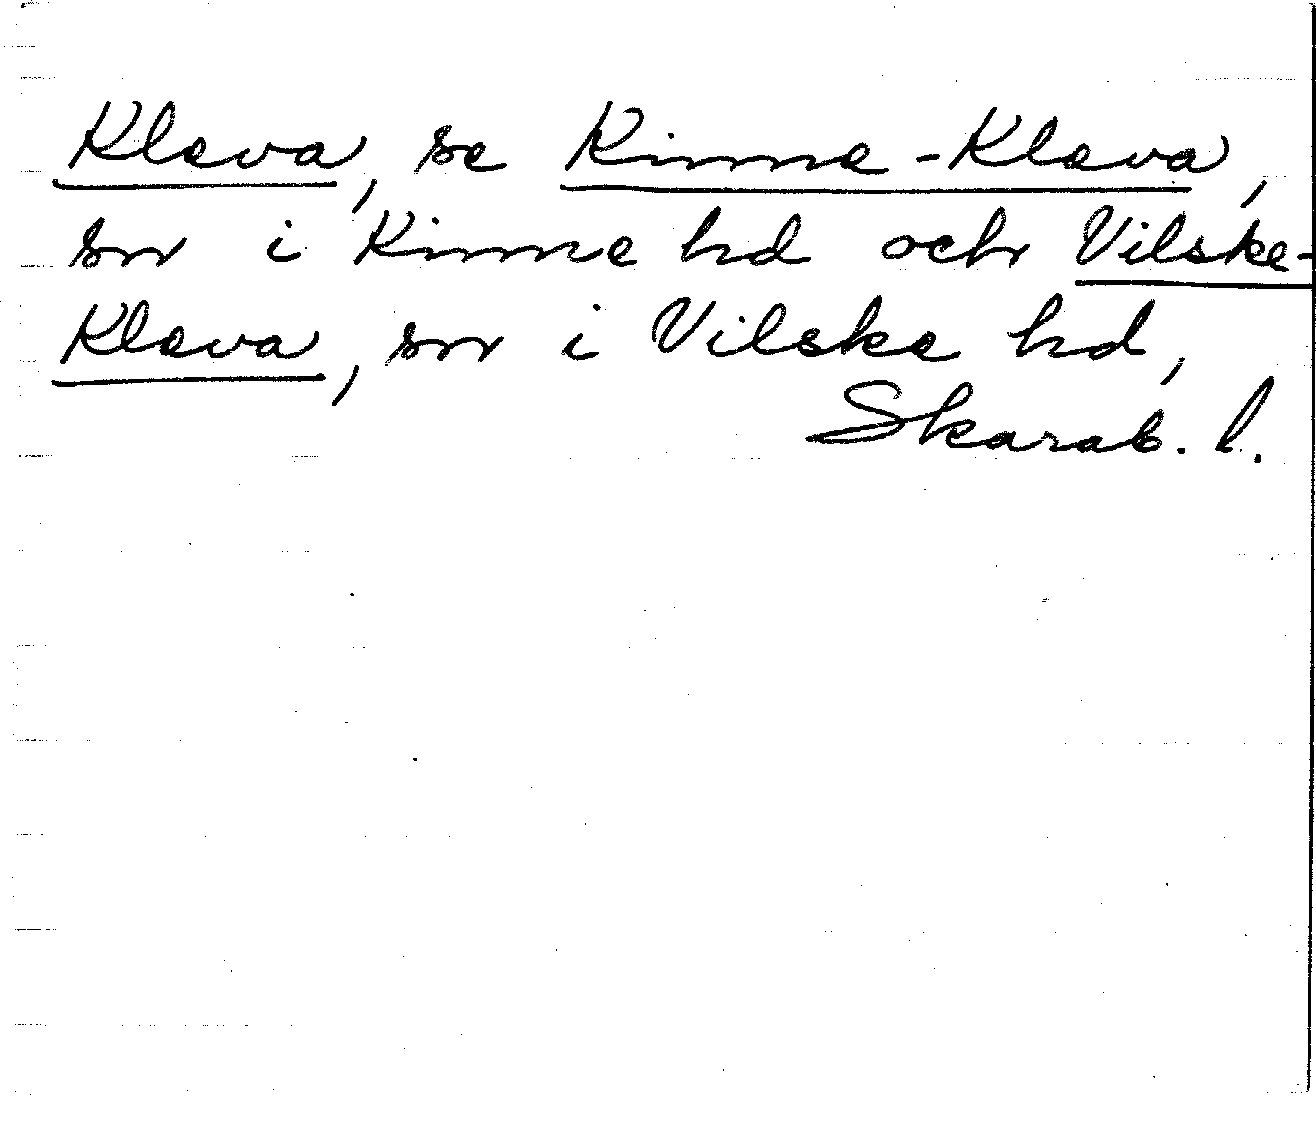 Kleva, se Kinne-Kleva,
sn i Kinne hd och Vilske-
Kleva, sn i Vilske hd,
Skarab. l.